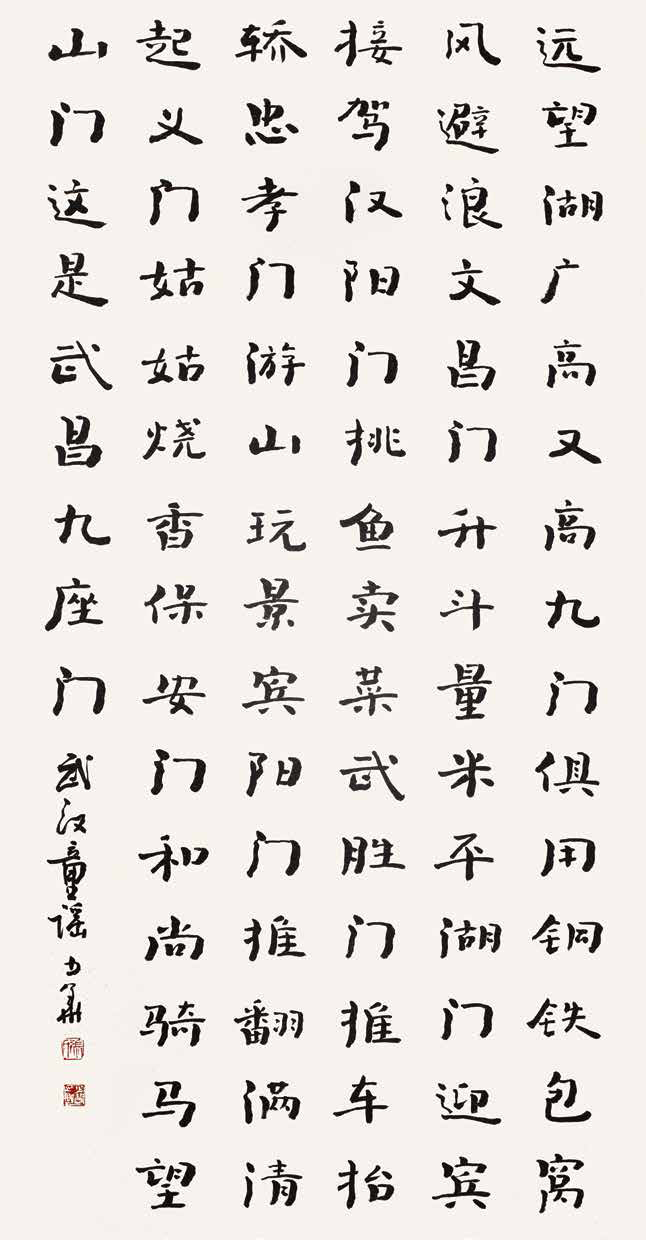 远望湖广高又高九门俱用铜铁包窝
风避浪文昌门升斗量米平湖门迎宾
接驾汉阳门挑鱼卖菜武胜门推车抬
轿忠孝门游山玩景宾阳门推翻满清
起义门姑姑烧香保安门和尚骑马望
山门这是武昌九座门
武汉童谣